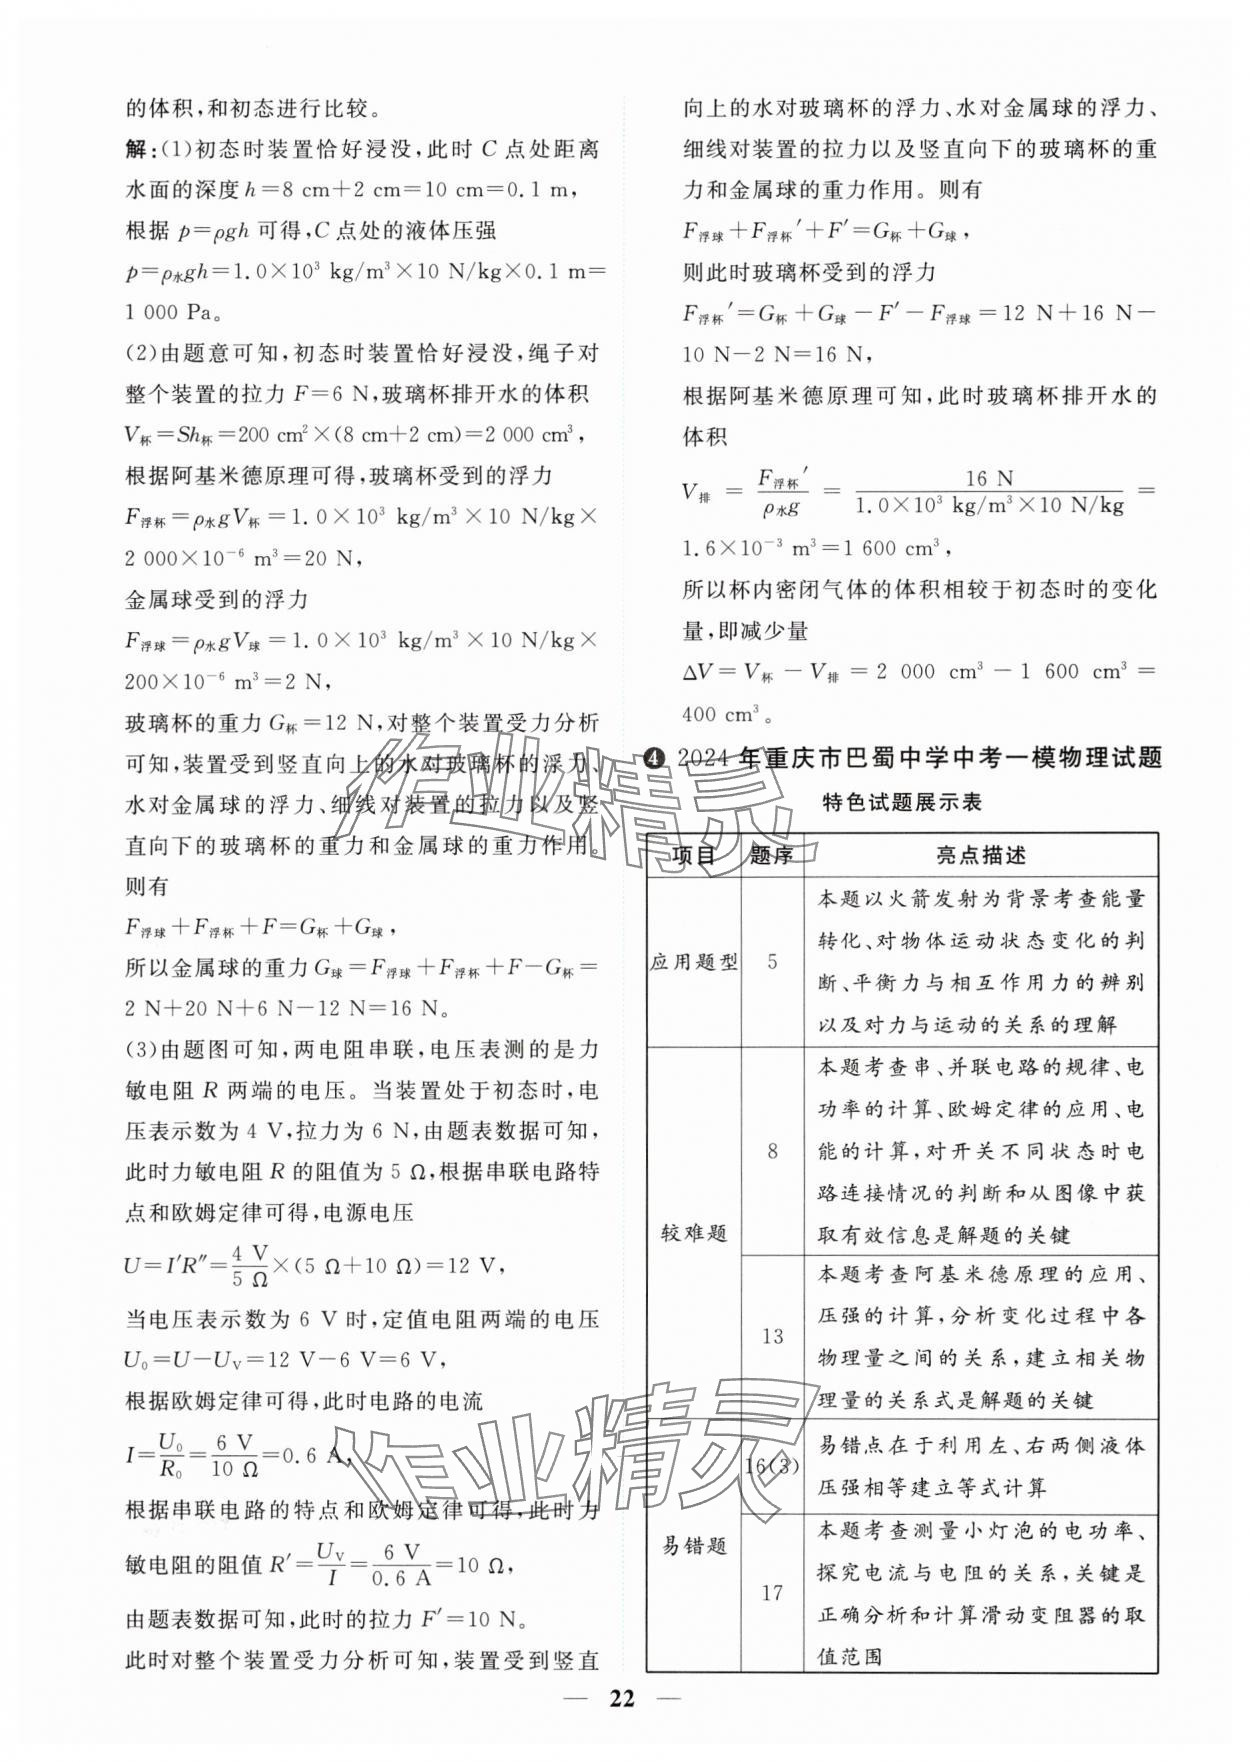 的体积,和初态进行比较。
解:(1)初态时装置恰好浸没,此时 C 点处距离
水面的深度 h=8 cm+2 cm=10 cm=0.1 m,
根据 p=ρgh 可得,C 点处的液体压强
p=ρ水gh=1.0×10³ kg/m³×10 N/kg×0.1 m=
1 000 Pa。
(2)由题意可知,初态时装置恰好浸没,绳子对
整个装置的拉力 F=6 N,玻璃杯排开水的体积
V杯=Sh杯=200 cm²×(8 cm+2 cm)=2 000 cm³,
根据阿基米德原理可得,玻璃杯受到的浮力
F浮杯=ρ水gV杯=1.0×10³ kg/m³×10 N/kg×
2 000×10⁻⁶ m³=20 N,
金属球受到的浮力
F浮球=ρ水gV球=1.0×10³ kg/m³×10 N/kg×
200×10⁻⁶ m³=2 N,
玻璃杯的重力 G杯=12 N,对整个装置受力分析
可知,装置受到竖直向上的水对玻璃杯的浮力、
水对金属球的浮力、细线对装置的拉力以及竖
直向下的玻璃杯的重力和金属球的重力作用。
则有
F浮球+F浮杯+F=G杯+G球,
所以金属球的重力 G球=F浮球+F浮杯+F-G杯=
2 N+20 N+6 N-12 N=16 N。
(3)由题图可知,两电阻串联,电压表测的是力
敏电阻 R 两端的电压。当装置处于初态时,电
压表示数为 4 V,拉力为 6 N,由题表数据可知,
此时力敏电阻 R 的阻值为 5 Ω,根据串联电路特
点和欧姆定律可得,电源电压
U=I′R″=4 V/5 Ω×(5 Ω+10 Ω)=12 V,
当电压表示数为 6 V 时,定值电阻两端的电压
U₀=U-UV=12 V-6 V=6 V,
根据欧姆定律可得,此时电路的电流
I=U₀/R₀=6 V/10 Ω=0.6 A,
根据串联电路的特点和欧姆定律可得,此时力
敏电阻的阻值 R′=UV/I=6 V/0.6 A=10 Ω,
由题表数据可知,此时的拉力 F′=10 N。
此时对整个装置受力分析可知,装置受到竖直
向上的水对玻璃杯的浮力、水对金属球的浮力、
细线对装置的拉力以及竖直向下的玻璃杯的重
力和金属球的重力作用。则有
F浮球+F浮杯′+F′=G杯+G球,
则此时玻璃杯受到的浮力
F浮杯′=G杯+G球-F′-F浮球=12 N+16 N-
10 N-2 N=16 N,
根据阿基米德原理可知,此时玻璃杯排开水的
体积
V排=F浮杯′/ρ水g=16 N/1.0×10³ kg/m³×10 N/kg=
1.6×10⁻³ m³=1 600 cm³,
所以杯内密闭气体的体积相较于初态时的变化
量,即减少量
ΔV=V杯-V排=2 000 cm³-1 600 cm³=
400 cm³。
❹ 2024年重庆市巴蜀中学中考一模物理试题
特色试题展示表
项目 题序 亮点描述
应用题型 5
本题以火箭发射为背景考查能量
转化、对物体运动状态变化的判
断、平衡力与相互作用力的辨别
以及对力与运动的关系的理解
较难题 8
本题考查串、并联电路的规律、电
功率的计算、欧姆定律的应用、电
能的计算,对开关不同状态时电
路连接情况的判断和从图像中获
取有效信息是解题的关键
13
本题考查阿基米德原理的应用、
压强的计算,分析变化过程中各
物理量之间的关系,建立相关物
理量的关系式是解题的关键
易错题 16(3)
易错点在于利用左、右两侧液体
压强相等建立等式计算
17
本题考查测量小灯泡的电功率、
探究电流与电阻的关系,关键是
正确分析和计算滑动变阻器的取
值范围
— 22 —
作业精灵
作业精灵